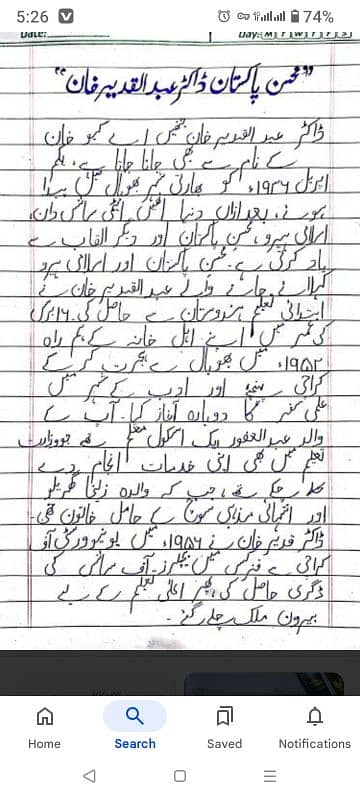 5:26
74%
Date:
Day: M T W T F S
"محسن پاکستان ڈاکٹر عبدالقدیر خان"
ڈاکٹر عبدالقدیر خان جنہیں اے کیو خان
کے نام سے بھی جانا جاتا ہے، یکم
اپریل ۱۹۳۶ء کو بھارتی شہر بھوپال میں پیدا
ہوئے، بعد ازاں دنیا انھیں ایٹمی سائنس دان،
اسلامی ہیرو، محسن پاکستان اور دیگر القاب سے
یاد کرتی ہے۔ محسن پاکستان اور اسلامی ہیرو
کہلائے جانے والے عبدالقدیر خان نے
ابتدائی تعلیم ہندوستان سے حاصل کی۔ ۱۶ برس
کی عمر میں اپنے اہل خانہ کے ہم راہ
۱۹۵۲ء میں بھوپال سے ہجرت کر کے
کراچی اور ادب کے شہر میں
علمی سفر کا دوبارہ آغاز کیا۔ آپ کے
والد عبدالغفور ایک اسکول معلم تھے جو وزارت
تعلیم میں بھی اپنی خدمات انجام دے
چکے تھے، جب کہ والدہ زلیخا گھریلو
اور انتہائی مذہبی سوچ کے حامل خاتون تھی۔
ڈاکٹر قدیر خان نے ۱۹۵۶ء میں یونیورسٹی آف
کراچی سے فزکس میں بیچلرز آف سائنس کی
ڈگری حاصل کی، پھر اعلیٰ تعلیم کے لیے
بیرون ملک چلے گئے۔
Home
Search
Saved
Notifications